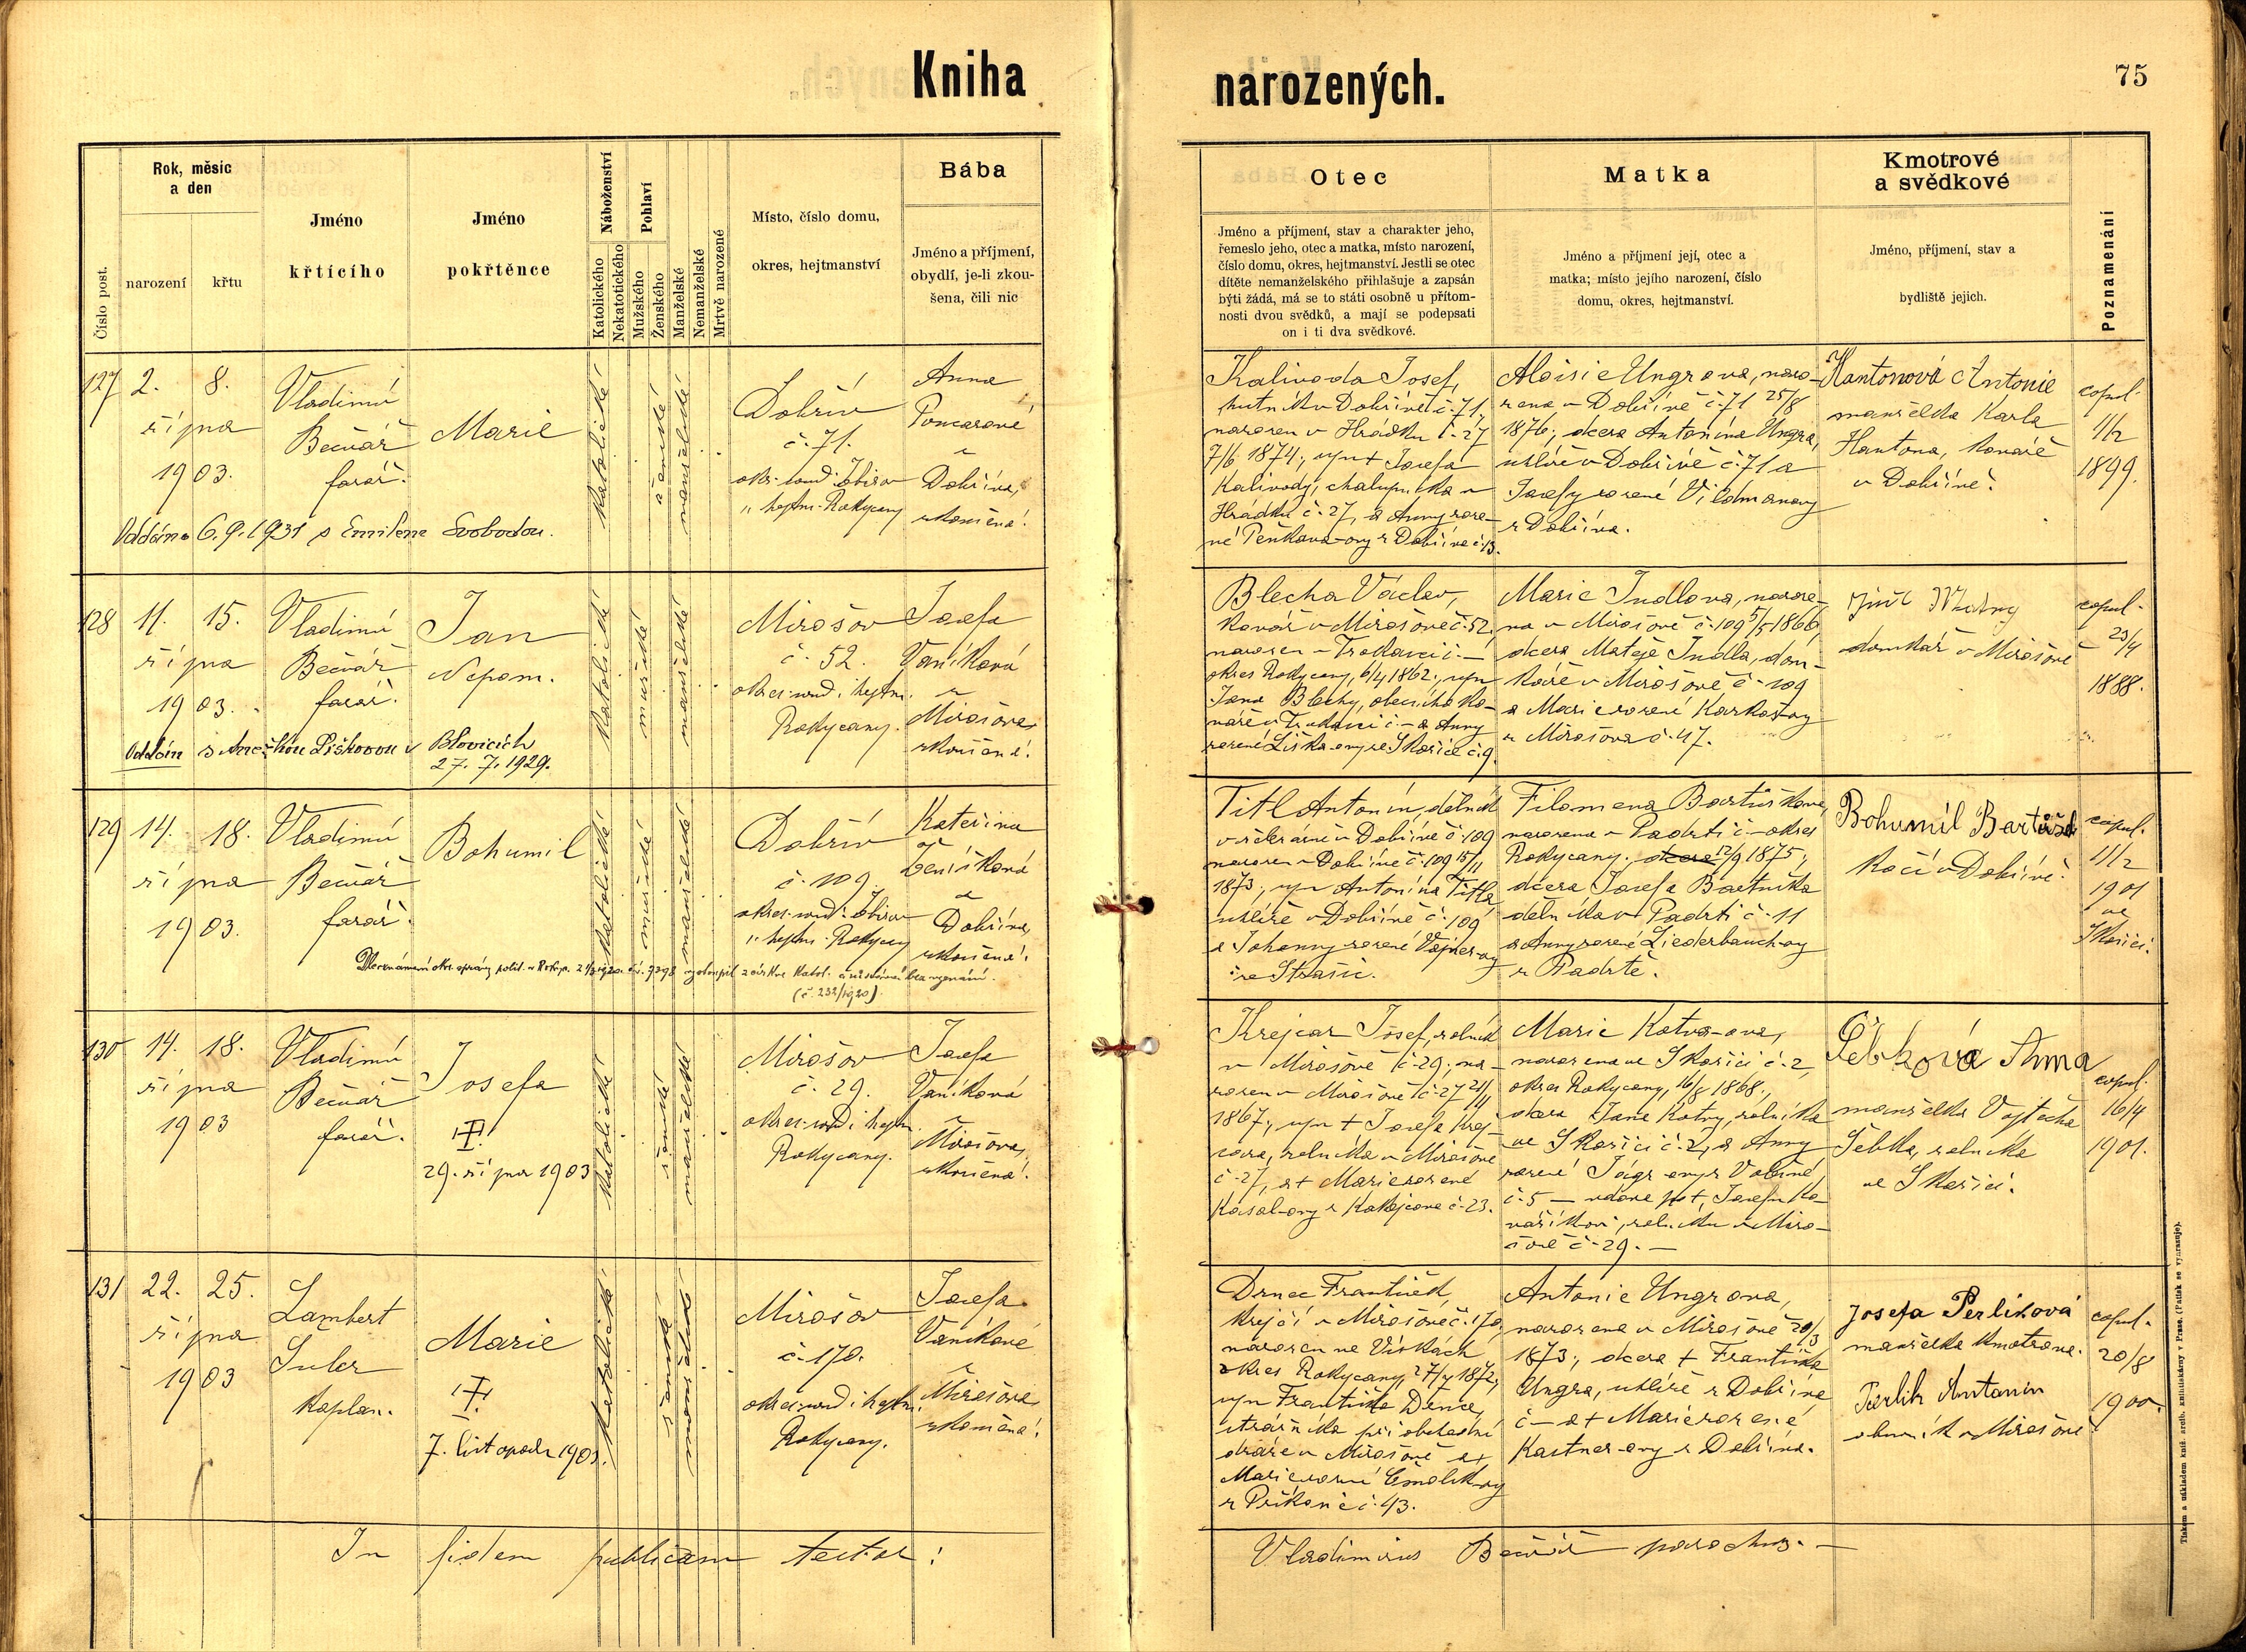 Kniha
narozených.
75
Číslo post.
Rok, měsíc
a den
narození
křtu
Jméno
křtícího
Jméno
pokřtěnce
Náboženství
Katolického
Nekatotického
Pohlaví
Mužského
Ženského
Manželské
Nemanželské
Mrtvě narozené
Místo, číslo domu,
okres, hejtmanství
Bába
Jméno a příjmení,
obydlí, je-li zkou-
šena, čili nic
Otec
Jméno a příjmení, stav a charakter jeho,
řemeslo jeho, otec a matka, místo narození,
číslo domu, okres, hejtmanství. Jestli se otec
dítěte nemanželského přihlašuje a zapsán
býti žádá, má se to státi osobně u přítom-
nosti dvou svědků, a mají se podepsati
on i ti dva svědkové.
Matka
Jméno a příjmení její, otec a
matka; místo jejího narození, číslo
domu, okres, hejtmanství.
Kmotrové
a svědkové
Jméno, příjmení, stav a
bydliště jejich.
Poznamenání
127
2. 8.
října
1903.
Vladimír
Bečvář
farář.
Marie
katolické
ženské
manželské
Dobřív
č. 71.
okr. soud: Zbirov
" hejtm. Rokycany
Anna
z
Dobříva,
zkoušená.
Oddána 6.9.1931 s Emilem Svobodou.
Kalivoda Josef,
hutník v Dobřívě č. 71,
narozen v Hrádku č. 27
7/6 1874, syn + Josefa
Kalivody, chalupníka v
Hrádku č. 27, a Anny roze-
né Penkava-ovy z Dobříva č. 13.
Aloisie Ungrova, naro-
zena v Dobřívě č. 71 25/8
1876, dcera Antonína Ungra,
uhlíře v Dobřívě č. 71 a
Josefy rozené Vildmanovy
z Dobříva.
Hantonová Antonie
manželka Karla
Hantona, kováře
v Dobřívě.
copul.
1/2
1899.
128
11. 15.
října
1903.
Vladimír
Bečvář
farář.
Jan
Nepom.
katolické
mužské
manželské
Mirošov
č. 52.
okres. soud i hejtm.
Rokycany.
Josefa
Vaníková
z
Mirošova,
zkoušená.
Oddán s Anežkou Liškovou v Blovicích
27. 7. 1929.
Blecha Václav,
kovář v Mirošově č. 52,
narozen v Trokavci č. —
okres Rokycany, 6/4 1862, syn
Jana Blechy, obecního ko-
váře v Trokavci č. — a Anny
rozené Liška-ovy ze Skořice č. 9.
Marie Indlova, naroze-
na v Mirošově č. 109 5/5 1866,
dcera Matěje Indla, dom-
káře v Mirošově č. 109
a Marie rozené Karkoš-ovy
z Mirošova č. 47.
domkář v Mirošově
copul.
23/4
1888.
129
14. 18.
října
1903.
Vladimír
Bečvář
farář.
Bohumil
katolické
mužské
manželské
Dobřív
č. 109
okres. soud: Zbirov
" hejtm. Rokycany
Kateřina
Ženíšková
z
Dobříva,
zkoušená.
(č. 232/1920).
Titl Antonín, dělník
v Dobřívě č. 109
narozen v Dobřívě č. 109 15/11
1873, syn Antonína Titla,
uhlíře v Dobřívě č. 109
a Johanny rozené Vajner-ovy
ze Strašic.
Filomena Bartůškova,
narozena v Padrti č. — okres
Rokycany, dcera 12/9 1875,
dcera Josefa Bartuška
dělníka v Padrti č. 11
a Anny rozené Liederbauch-ovy
z Padrtě.
Bohumil Bartůšek
kočí v Dobřívě.
copul.
11/2
1901
ve
Skořici.
130
14. 18.
října
1903
Vladimír
Bečvář
farář.
Josefa
29. října 1903
katolické
ženské
manželské
Mirošov
č. 29.
okres. soud i hejtm.
Rokycany.
Josefa
Vaníková
z
Mirošova,
zkoušená.
Krejcar Josef, rolník
v Mirošově č. 29, na-
rozen v Mirošově č. 27 21/11
1867, syn + Josefa Krej-
cara, rolníka v Mirošově
č. 27, a + Marie rozené
Kasal-ovy z Kakejcova č. 23.
Marie Kotva-ova,
narozena ve Skořici č. 2,
okres Rokycany, 16/8 1868,
dcera Jana Kotvy, rolníka
ve Skořici č. 2, a Anny
rozené Jágr-ovy z Volduch
č. 5 — vdova po +, Josefu Ko-
vaříkovi, rolníku v Miro-
šově č. 29. —
Šebková Anna
manželka Vojtěcha
Šebka, rolníka
ve Skořici.
copul.
16/4
1901.
131
22. 25.
října
1903
Lambert
Suler
kaplan.
Marie
7. listopadu 1903.
katolické
ženské
manželské
Mirošov
č. 170.
okres. soud i hejtm.
Rokycany.
Josefa
Vaníková
z
Mirošova
zkoušená.
Drnec František,
krejčí v Mirošově č. 170,
narozen ve Vískách
okres Rokycany, 27/4 1872,
syn Františka Drnce,
strážníka při obchodní
dráze v Mirošově a +
Marie rozené Čmolík-ovy
z Příkosic č. 43.
Antonie Ungrova,
narozena v Mirošově 20/3
1873, dcera + Františka
Ungra, uhlíře z Dobříva
č. — a + Marie rozené
Kastner-ovy z Dobříva.
Josefa Perlíková
manželka kmotrova.
Perlík Antonín
obuvník v Mirošově
copul.
20/8
1900.
In fidem publicam testor:
Vladimirus Bečvář parochus. —
Tiskem a nákladem knih. arcib. knihtiskárny v Praze. (Patisk se vyhrazuje).